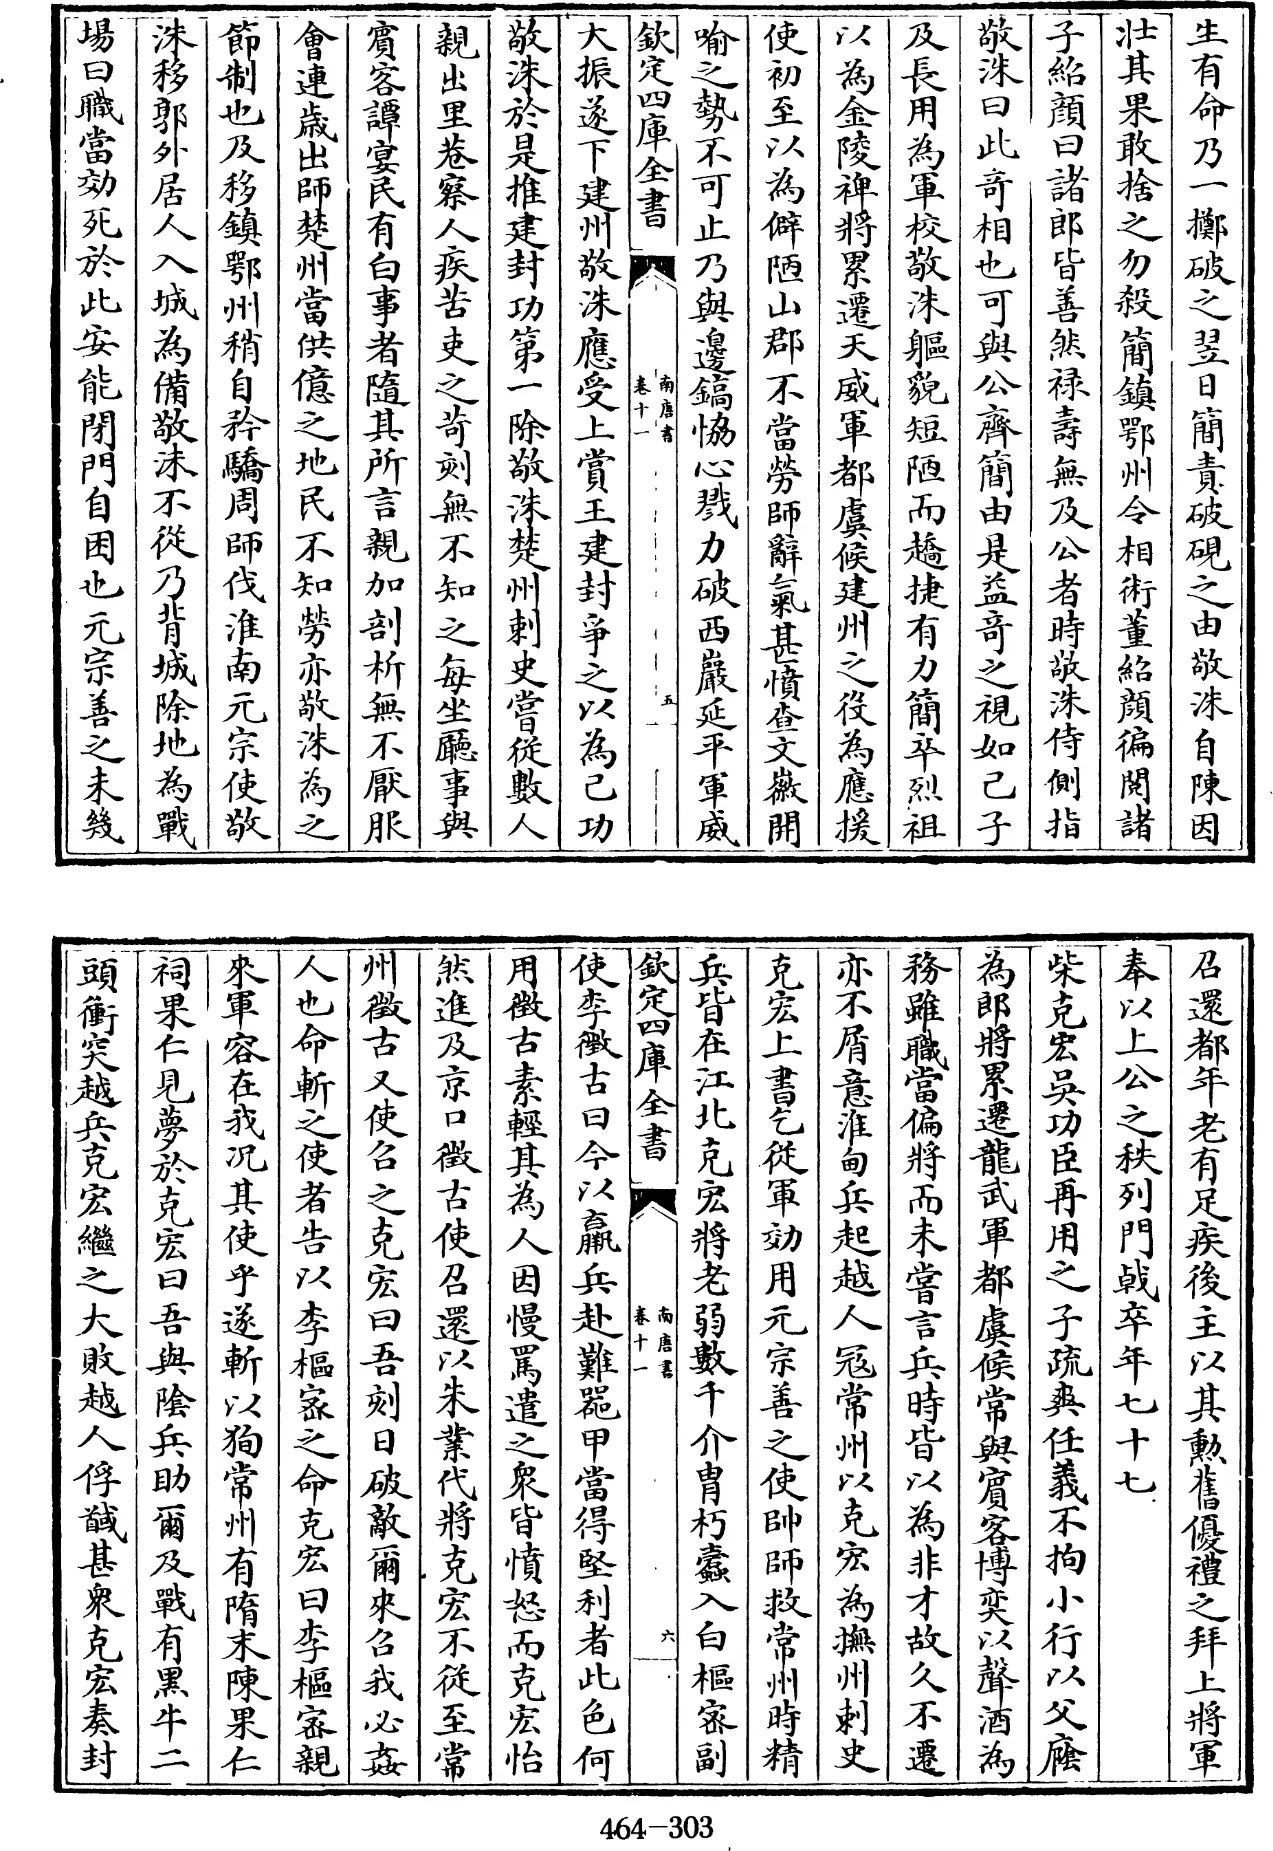 生有命乃一擲破之翌日簡責破硯之由敬洙自陳因
壯其果敢捨之勿殺簡鎮鄂州令相術董紹顔徧閲諸
子紹顔曰諸郎皆善然禄壽無及公者時敬洙侍側指
敬洙曰此竒相也可與公齊簡由是益竒之視如己子
及長用為軍校敬洙軀貌短陋而趫捷有力簡卒烈祖
以為金陵裨將累遷天威軍都虞候建州之役為應援
使初至以為僻陋山郡不當勞師辭氣甚憤查文徽開
喻之勢不可止乃與邊鎬恊心戮力破西巖延平軍威
欽定四庫全書
南唐書
卷十一
五
大振遂下建州敬洙應受上賞王建封爭之以為己功
敬洙於是推建封功第一除敬洙楚州刺史嘗從數人
親出里巷察人疾苦吏之苛刻無不知之每坐廳事與
賓客譚宴民有白事者隨其所言親加剖析無不厭服
會連歲出師楚州當供億之地民不知勞亦敬洙為之
節制也及移鎮鄂州稍自矜驕周師伐淮南元宗使敬
洙移郭外居人入城為備敬洙不從乃背城除地為戰
場曰職當効死於此安能閉門自困也元宗善之未幾
召還都年老有足疾後主以其勲舊優禮之拜上將軍
奉以上公之秩列門㦸卒年七十七
柴克宏吳功臣再用之子疏爽任義不拘小行以父廕
為郎將累遷龍武軍都虞候常與賓客博奕以聲酒為
務雖職當偏將而未嘗言兵時皆以為非才故久不遷
亦不屑意淮甸兵起越人冦常州以克宏為撫州刺史
克宏上書乞從軍効用元宗善之使帥師救常州時精
兵皆在江北克宏將老弱數千介胄朽蠹入白樞宻副
欽定四庫全書
南唐書
卷十一
六
使李徵古曰今以羸兵赴難器甲當得堅利者此色何
用徵古素輕其為人因慢罵遣之衆皆憤怒而克宏怡
然進及京口徵古使召還以朱業代將克宏不從至常
州徵古又使召之克宏曰吾刻日破敵爾來召我必姦
人也命斬之使者告以李樞宻之命克宏曰李樞宻親
來軍容在我况其使乎遂斬以狥常州有隋末陳果仁
祠果仁見夢於克宏曰吾與陰兵助爾及戰有黑牛二
頭衝突越兵克宏繼之大敗越人俘馘甚衆克宏奏封
464-303